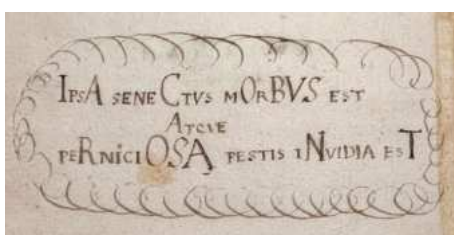 IPsA SENE CTVS MORBVS EST
ATQVE
PERNICIOSA PESTIS INVIDIA EST